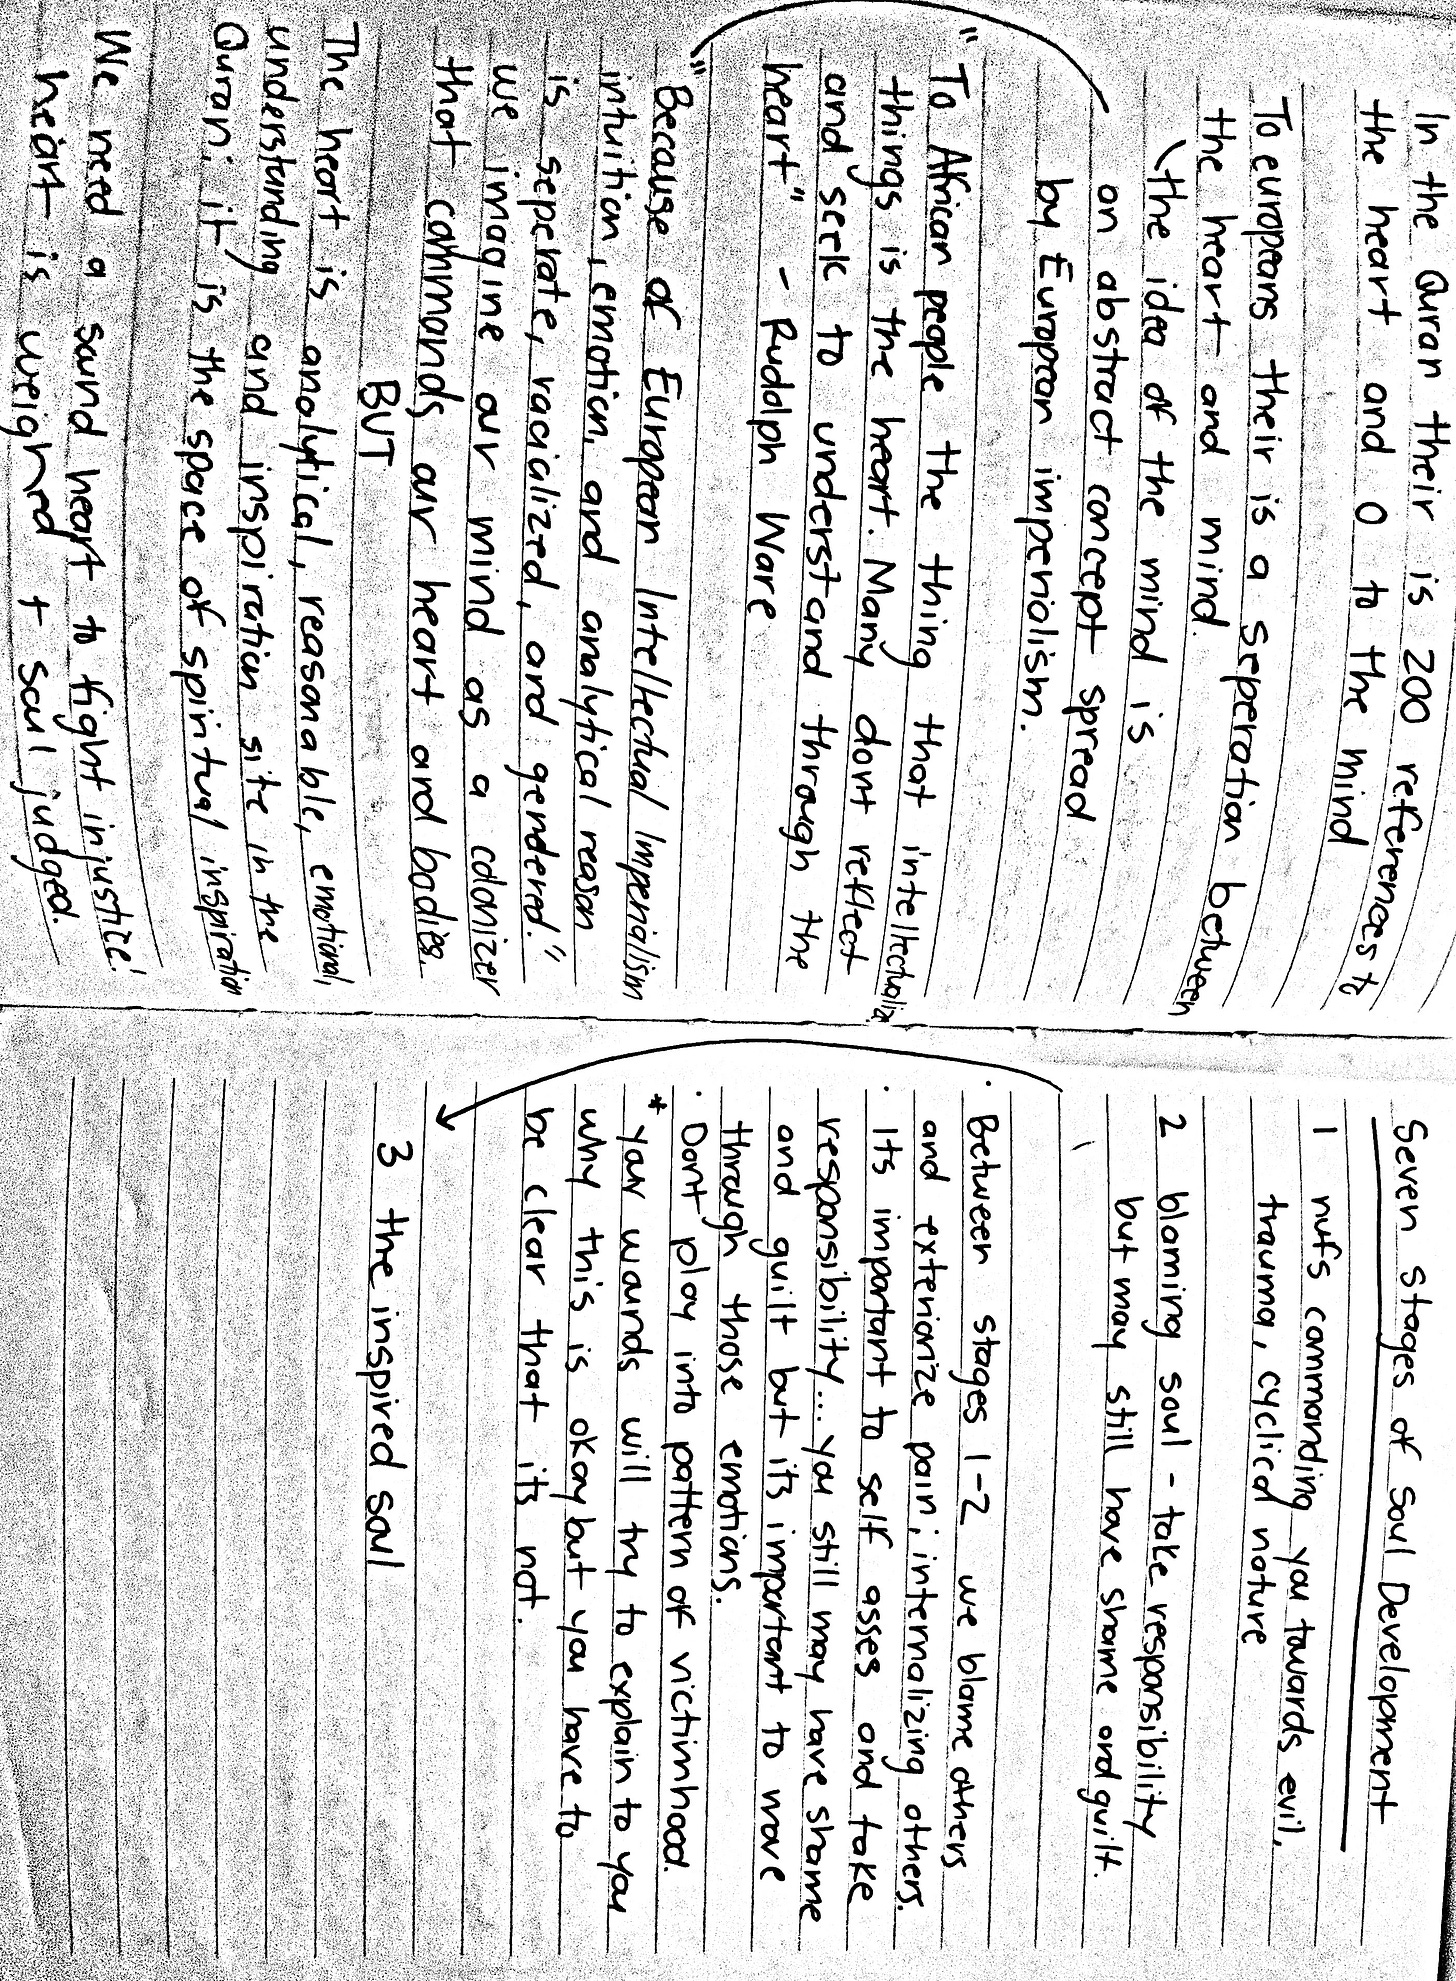 In the Quran their is 200 references to
the heart and 0 to the mind
To europeans their is a seperation between
the heart and mind.
the idea of the mind is
an abstract concept spread
by European imperiolism.
"To African people the thing that intellectualize
things is the heart. Many dont reflect
and seek to understand through the
heart" - Rudolph Ware
"Because of European Intellectual Imperialism
intuition, emotion, and analytical reason
is seperate, racialized, and gendered."
we imagine our mind as a colonizer
that commands our heart and bodies.
BUT
The heart is analytical, reasonable, emotional,
understanding and inspiration site in the
Quran; it is the space of spiritual inspiration
We need a sound heart to fight injustice!
heart is weighed + soul judged.
Seven stages of Soul Development
1 nufs commanding you towards evil,
trauma, cyclical nature
2 blaming soul - take responsibility
but may still have shame and guilt.
· Between stages 1-2 we blame others
and exteriorize pain; internalizing others.
· Its important to self asses and take
responsibility... you still may have shame
and guilt but its important to move
through those emotions.
· Dont play into pattern of victimhood.
* your wounds will try to explain to you
why this is okay but you have to
be clear that its not.
3 the inspired soul